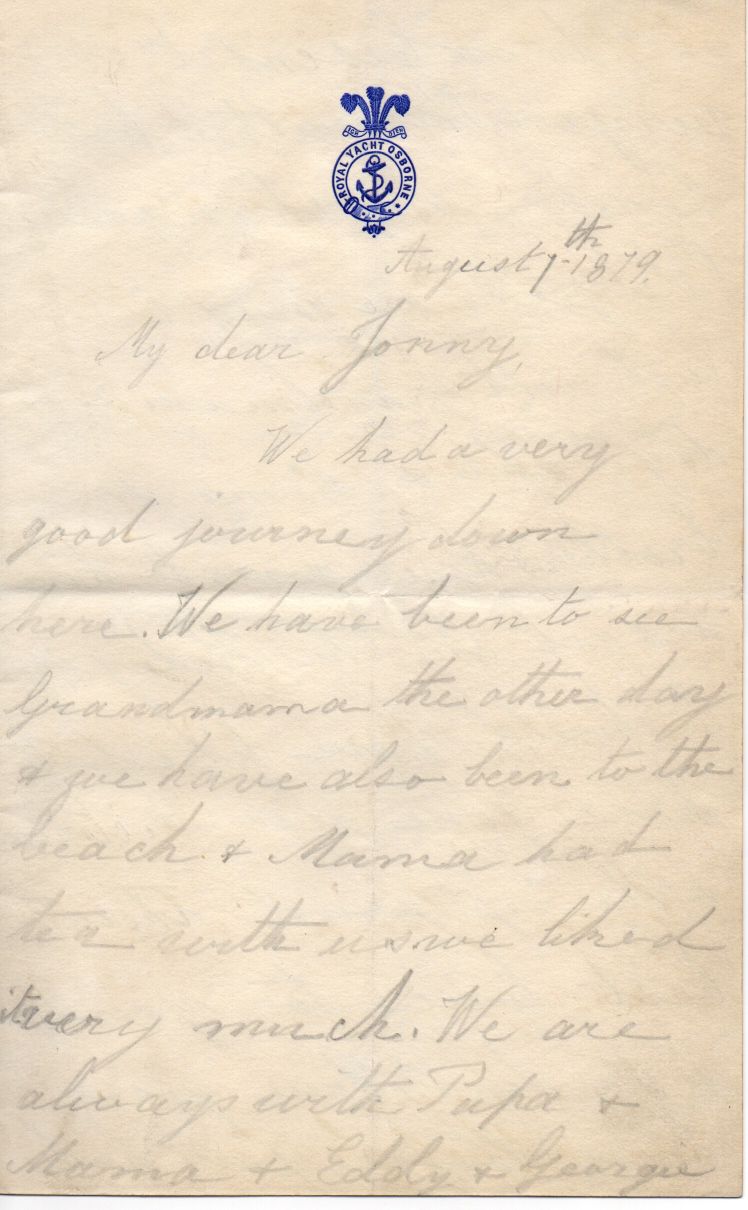 ICH DIEN
ROYAL YACHT OSBORNE
August 7th 1879.
My dear Jonny,
We had a very
good journey down
here. We have been to see
Grandmama the other day
& we have also been to the
beach & Mama had
tea with us we liked
it very much. We are
always with Papa &
Mama & Eddy & Georgie